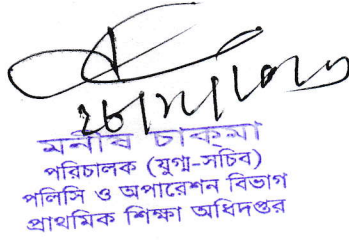 মনীষ চাকমা
পরিচালক (যুগ্ম-সচিব)
পলিসি ও অপারেশন বিভাগ
প্রাথমিক শিক্ষা অধিদপ্তর